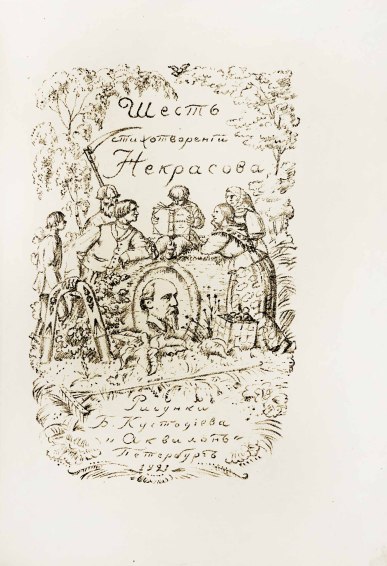 Шесть
стихотворенiй
Некрасова.
Рисунки
Б. Кустодiева
„Аквилонъ“
Петербургъ
1921